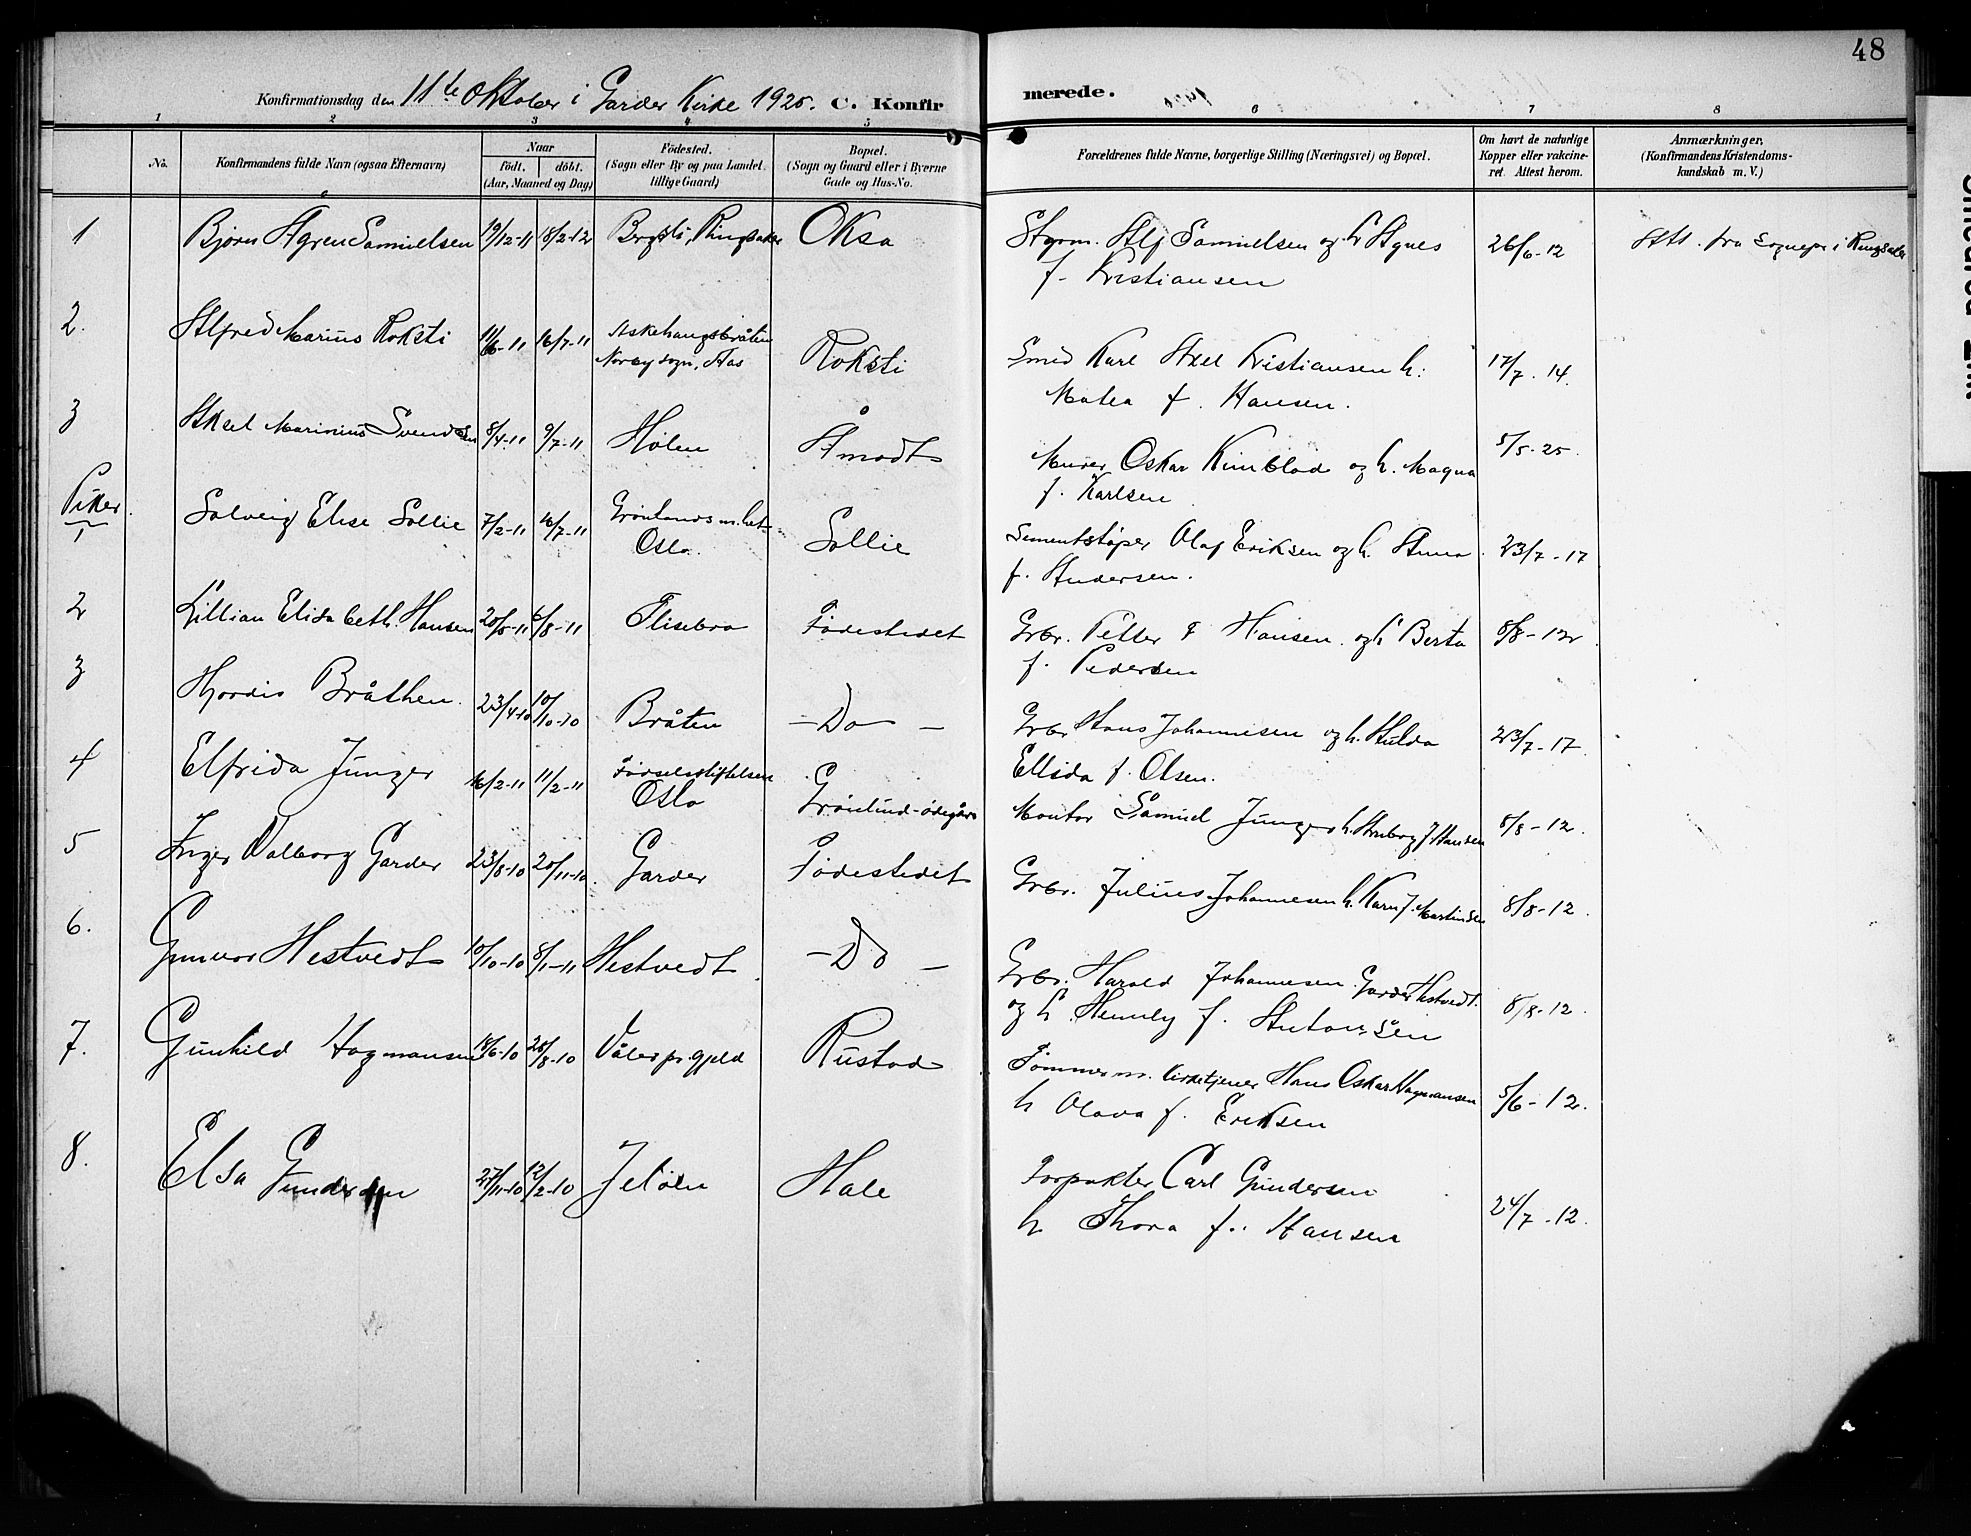 48
Konfirmationsdag den 11te Oktober i Garder Kirke 1925. C. Konfirmerede.
1 2 3 4 5 6 7 8
No. Konfirmandens fulde Navn (ogsaa Efternavn) Naar født. døbt. (Aar, Maaned og Dag) Fødested. (Sogn eller By og paa Landet tillige Gaard) Bopæl. (Sogn og Gaard eller i Byerne Gade og Hus-No. Forældrenes fulde Navne, borgerlige Stilling (Næringsvei) og Bopæl. Om havt de naturlige Kopper eller vakcineret. Attest herom. Anmærkninger, (Konfirmandens Kristendomskundskab m. V.)
1 Bjørn Ågren Samuelsen 19/12-11 18/2-12 Ringsaker Oksa Alf Samuelsen og h. Agnes 26/6-12 fra Sognepr i Ringsaker
f. Kristiansen
2. Alfred Marius Roksti 11/6-11 16/7-11 Askehaugsbråten
Norby sogn, Aas Roksti Smed Karl Axel Kristiansen h. 17/7-14.
Matea f. Hansen.
3 Aksel Marinius Svendsen 8/4-11 9/7-11 Hølen Åmodt Murer Oskar Kinblad og h. Magna 5/5-25.
f. Karlsen
Piker.
1 Solveig Elise Sollie 7/2-11 16/7-11 Grønlands m.het
Oslo. Sollie Sementstøper Olaf Eriksen og h. Anna 23/7-17
f. Andersen.
2 Lillian Elisabeth Hansen 20/5-11 6/8-11 Flisebro Fødestedet Grbr. Petter Hansen og h Berta 8/8-12
f. Pedersen
3 Hjordis Bråthen. 23/4-10 10/10-10 Bråten - Do - Grbr Hans Johannesen og h. Hulda 23/7-17.
Ellida f. Olsen.
4 Elfrida Junger 16/2-11 11/2-11 Fødselsstiftelsen
Oslo Grønlund-ødegård Montør Samuel Junger h. f Hansen 8/8-12.
5 Inger Valborg Garder 23/8-10 20/11-10 Garder Fødestedet Grbr. Julius Johannesen h. Karn f. Martinsen 8/8-12.
6. Gunvor Hestvedt 10/10-10 8/1-11 Hestvedt - Do - Grbr. Harald Johannesen Garder Hestvedt. 8/8-12.
og h. Henny f. Antonsen
7. Gunhild Hagmansen 18/6-10 28/8-10 Våler pr.gjeld Rustad Tømmerm. kirketjener Hans Oskar Hagmansen 5/6-12.
h Olava f. Eriksen
8. Elsa Gundersen 27/11-10 12/2-10 Jeløen Hale Forpakter Carl Gundersen 24/7-12.
h Thora f. Hansen